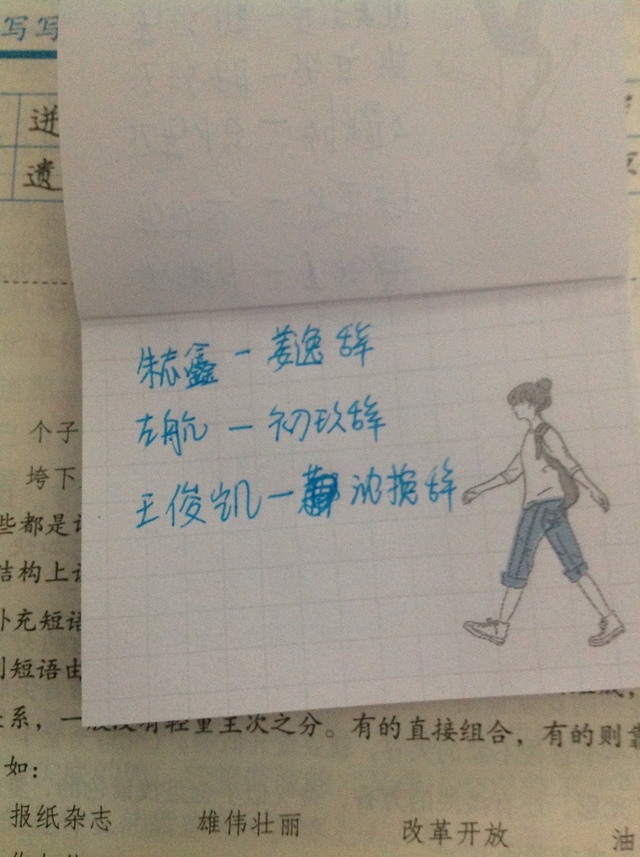 写写
迸
遗
朱志鑫 - 姜逸辞
左航 - 初玖辞
王俊凯 - 沈 辞
个子
垮下
些都是
结构上
补充短语
列短语由
关系，一般没有轻重主次之分。有的直接组合，有的则靠
如：
报纸杂志 雄伟壮丽 改革开放 油